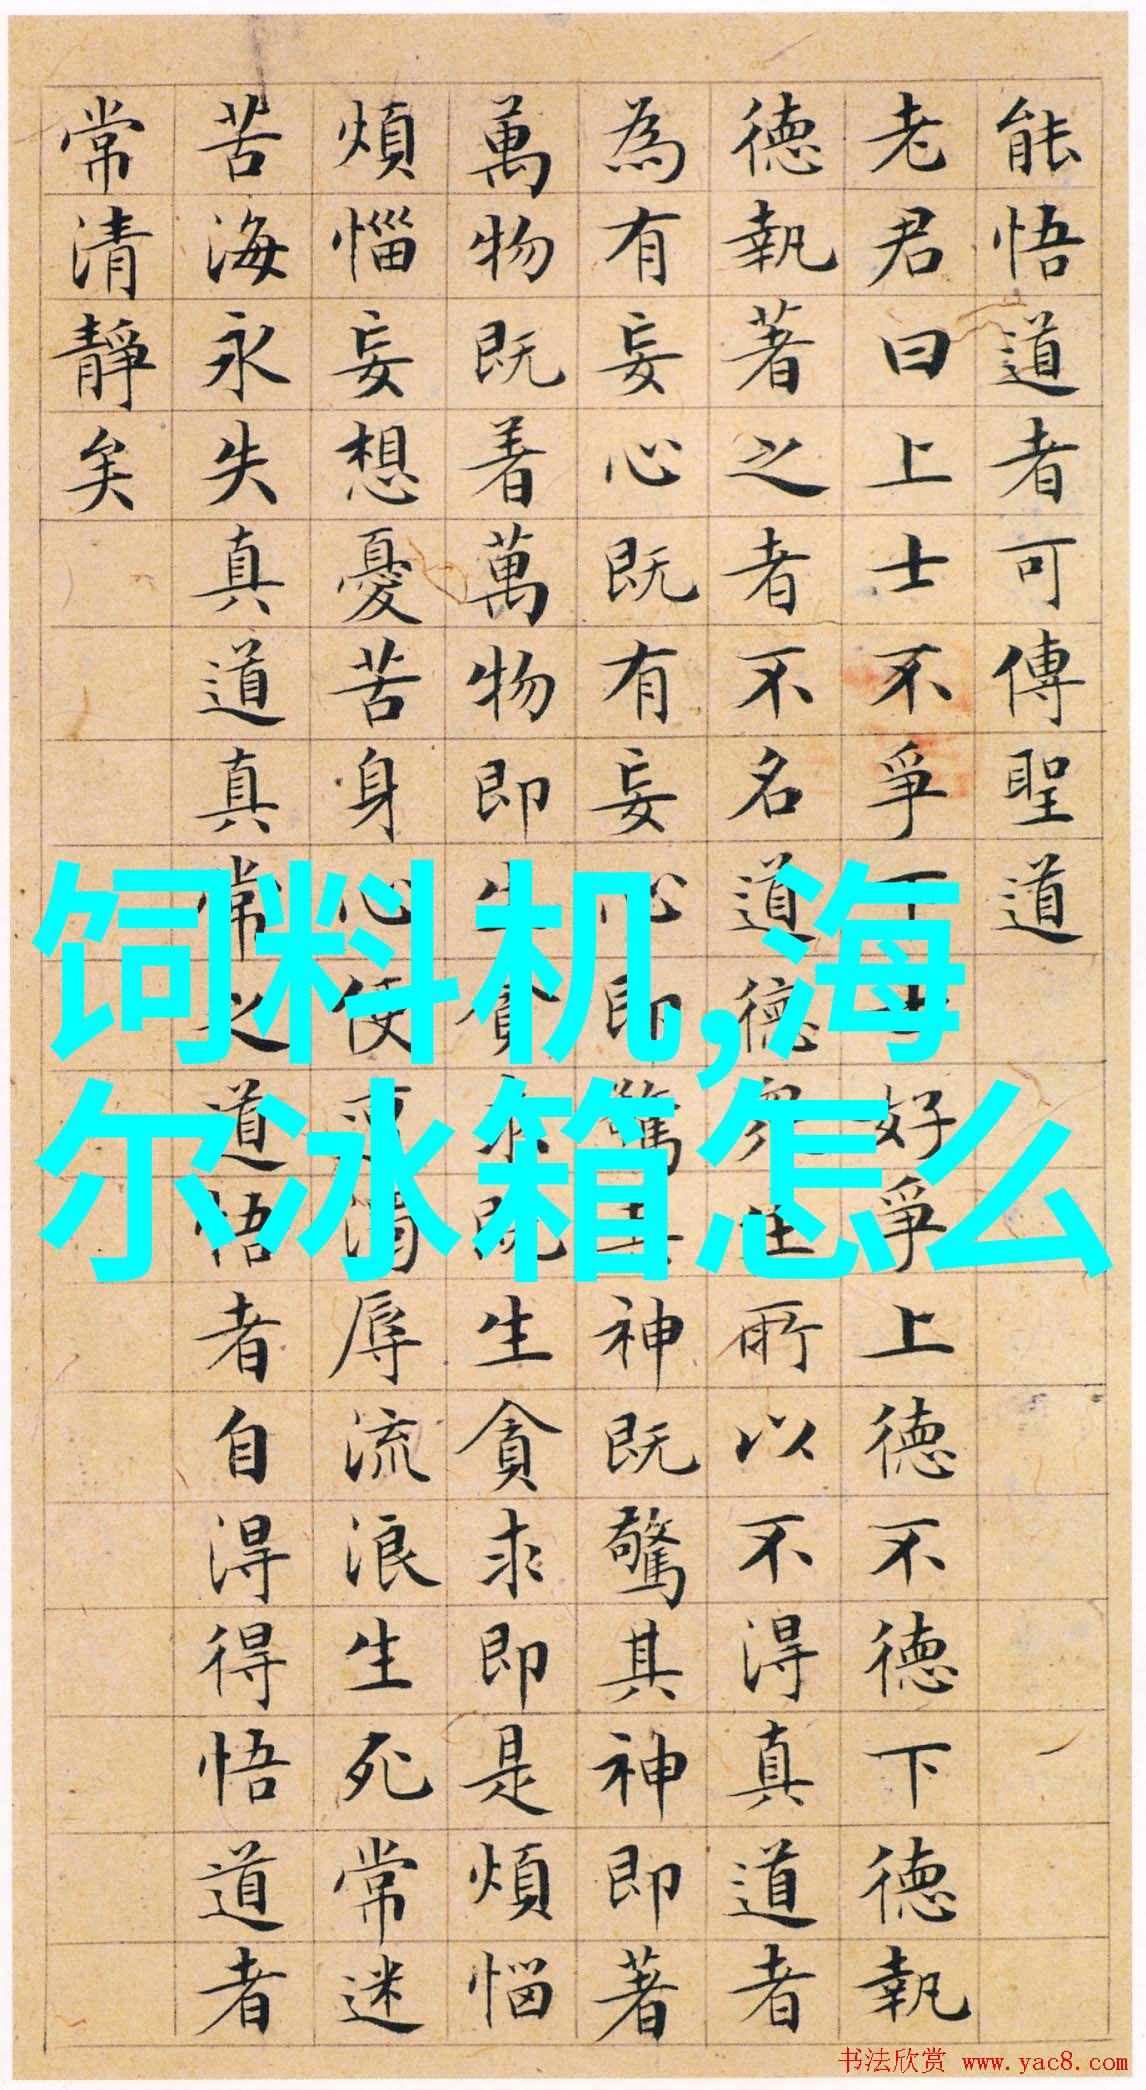 能悟道者可傳聖道
老君曰上士不爭下士好爭上德不德下德執
德執著之者不名道德眾生所以不得真道者
為有妄心既有妄心即驚其神既驚其神即著
萬物既着萬物即生貪求既生貪求即是煩惱
煩惱妄想憂苦身心便遭濁辱流浪生死常迷
苦海永失真道真常之道悟者自得得悟道者
常清靜矣
饲料机,海
尔冰箱怎么
书法欣赏 www.yac8.com